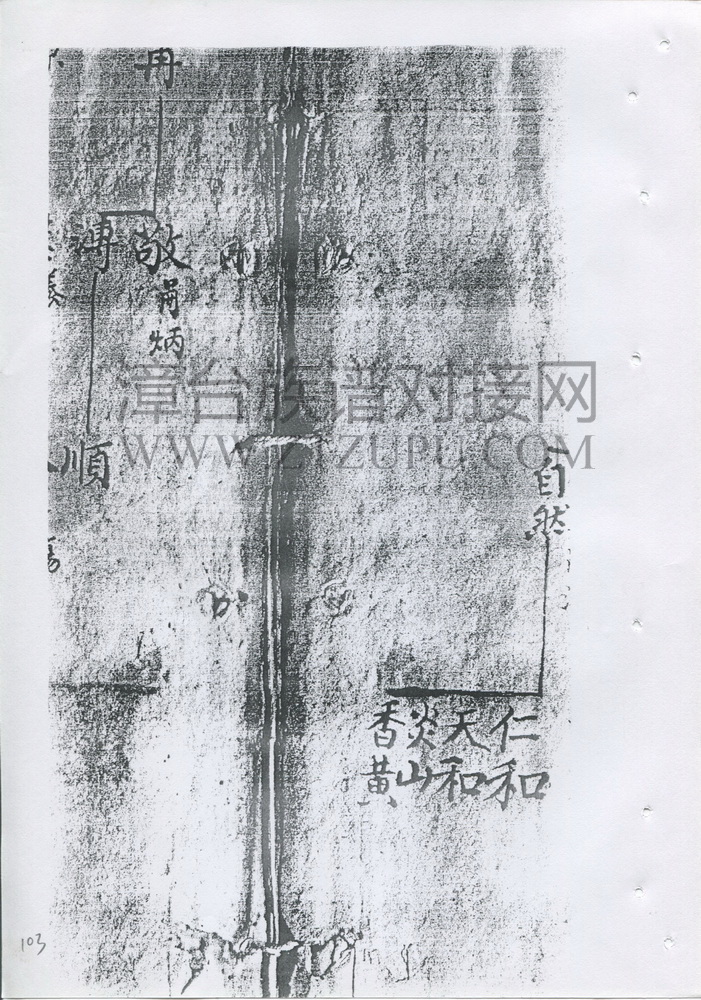 自然
仁和
天和
炎山
香黃
冉
敬
炳
漙
順
漳台族谱对接网
WWW.ZTZUPU.COM
103